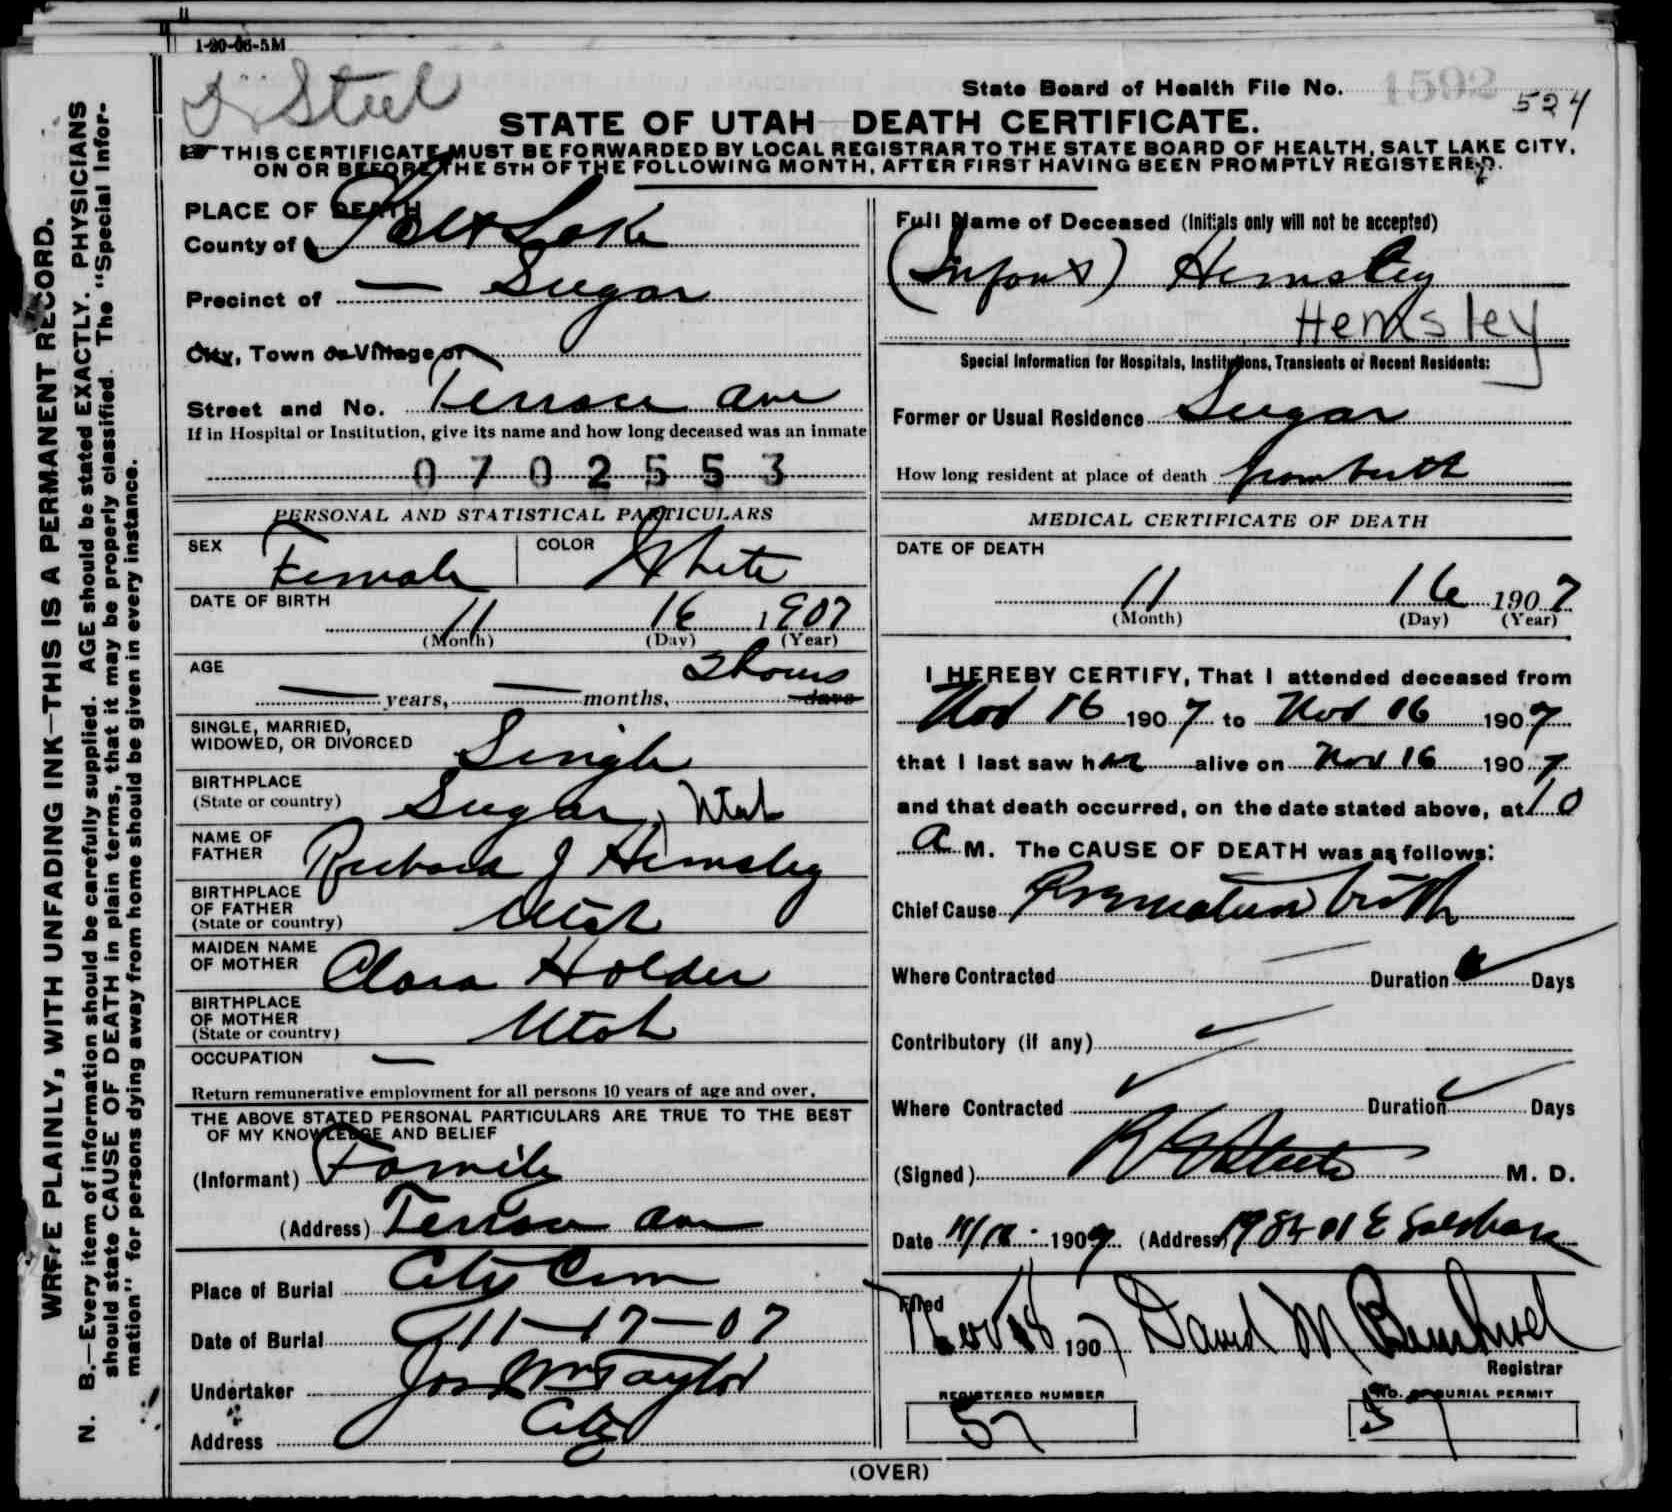 1-20-06-5M
Steel
State Board of Health File No. 1592 524
STATE OF UTAH DEATH CERTIFICATE.
THIS CERTIFICATE MUST BE FORWARDED BY LOCAL REGISTRAR TO THE STATE BOARD OF HEALTH, SALT LAKE CITY,
ON OR BEFORE THE 5TH OF THE FOLLOWING MONTH, AFTER FIRST HAVING BEEN PROMPTLY REGISTERED.
WRITE PLAINLY, WITH UNFADING INK—THIS IS A PERMANENT RECORD.
N. B.—Every item of information should be carefully supplied. AGE should be stated EXACTLY. PHYSICIANS
should state CAUSE OF DEATH in plain terms, that it may be properly classified. The "Special Infor-
mation" for persons dying away from home should be given in every instance.
PLACE OF DEATH
County of Salt Lake
Precinct of — Sugar
City, Town or Village of
Street and No. Terrace Ave
If in Hospital or Institution, give its name and how long deceased was an inmate
0702553
PERSONAL AND STATISTICAL PARTICULARS
SEX Female COLOR White
DATE OF BIRTH
11 16 1907
(Month) (Day) (Year)
AGE
— years, — months, 2 hours days
SINGLE, MARRIED,
WIDOWED, OR DIVORCED Single
BIRTHPLACE
(State or country) Sugar, Utah
NAME OF
FATHER Richard J Hemsley
BIRTHPLACE
OF FATHER
(State or country) Utah
MAIDEN NAME
OF MOTHER Clara Holder
BIRTHPLACE
OF MOTHER
(State or country) Utah
OCCUPATION —
Return remunerative employment for all persons 10 years of age and over.
THE ABOVE STATED PERSONAL PARTICULARS ARE TRUE TO THE BEST
OF MY KNOWLEDGE AND BELIEF
(Informant) Family
(Address) Terrace Ave
Place of Burial City Cem
Date of Burial 11-17-07
Undertaker Jos Wm Taylor
Address City
Full Name of Deceased (Initials only will not be accepted)
(Infant) Hemsley
Hemsley
Special Information for Hospitals, Institutions, Transients or Recent Residents:
Former or Usual Residence Sugar
How long resident at place of death from birth
MEDICAL CERTIFICATE OF DEATH
DATE OF DEATH
11 16 1907
(Month) (Day) (Year)
I HEREBY CERTIFY, That I attended deceased from
Nov 16 1907 to Nov 16 1907
that I last saw her alive on Nov 16 1907
and that death occurred, on the date stated above, at 10
a M. The CAUSE OF DEATH was as follows:
Chief Cause Premature birth
Where Contracted Duration Days
Contributory (if any)
Where Contracted Duration Days
(Signed) M. D.
Date 11/18 1907 (Address)
Filed
Nov 18 1907 David M
Registrar
REGISTERED NUMBER
57
NO. OF BURIAL PERMIT
57
(OVER)